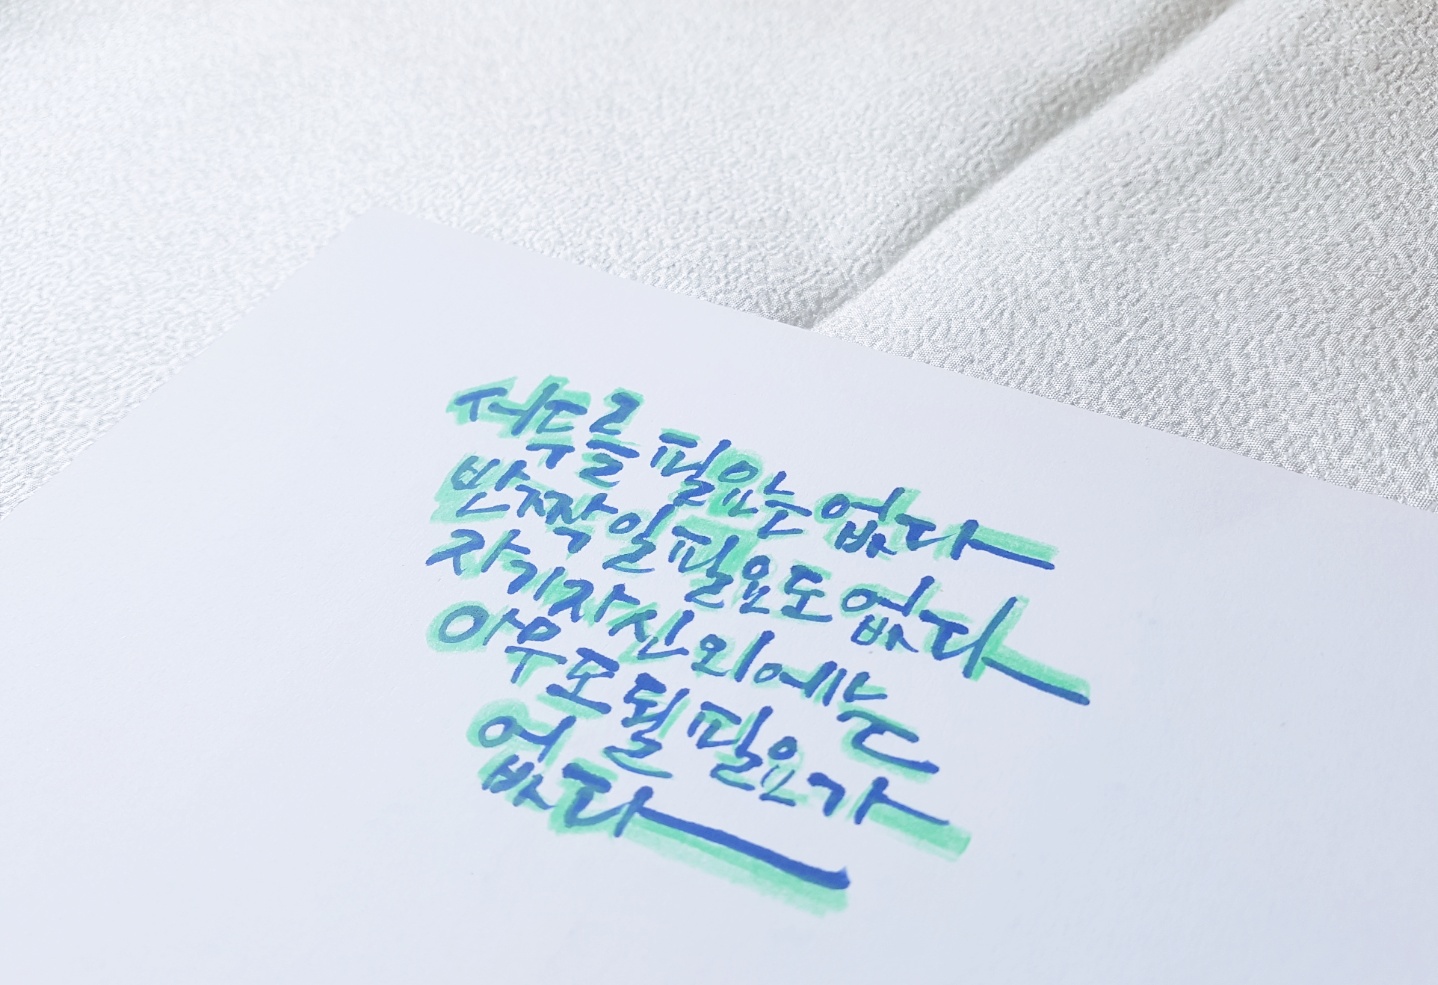 서두를 필요는 없다
반짝일 필요도 없다
자기자신 외에는
아무도 될 필요가
없다